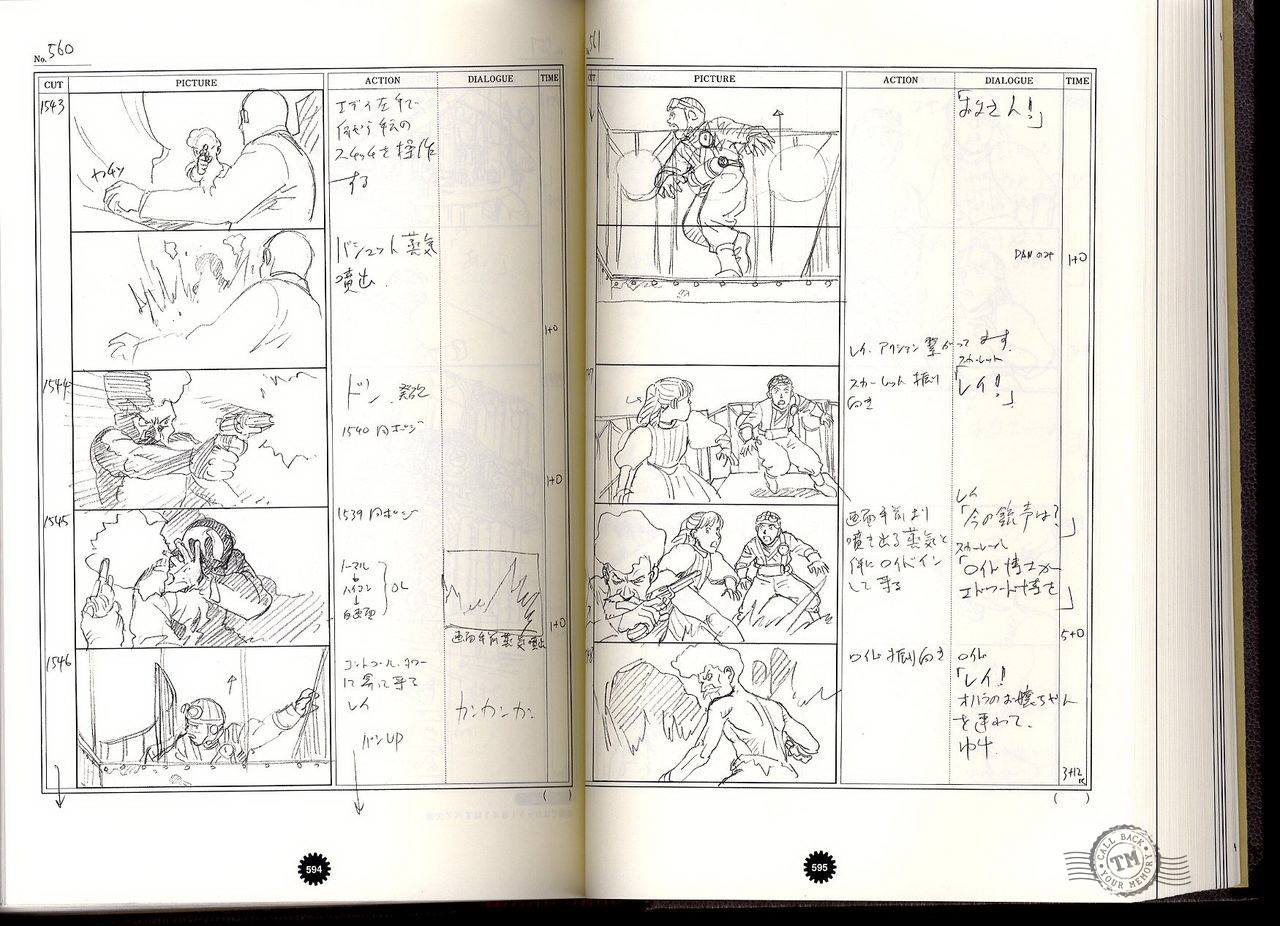 No. 560
CUT
PICTURE
ACTION
DIALOGUE
TIME
1543
エディ左手で
スイッチを操作
する
バシュット蒸気
噴出
1+0
1544
ドン 発砲
1540 同ポジ
1+0
1545
1539 同ポジ
ノーマル
↓
ハイコン
↓
白画面
OL
画面手前蒸気噴出
1+0
1546
コントロールタワー
に寄って来て
レイ
パンUP
カンカンカン
( )
594
561
CUT
PICTURE
ACTION
DIALOGUE
TIME
「父さん!」
1+0
レイ、アクション繋がってます。
スカーレット 振り
向き
スカーレット
「レイ!」
画面手前より
噴き出る蒸気と
供にロイドイン
して来る
レイ
「今の銃声は?」
スカーレット
「ロイド博士が
エドワード博士を」
5+0
ロイド振り向き
ロイド
「レイ!
オハラのお嬢ちゃん
を連れて、
3+12
( )
595
CALL BACK
TM
YOUR MEMORY